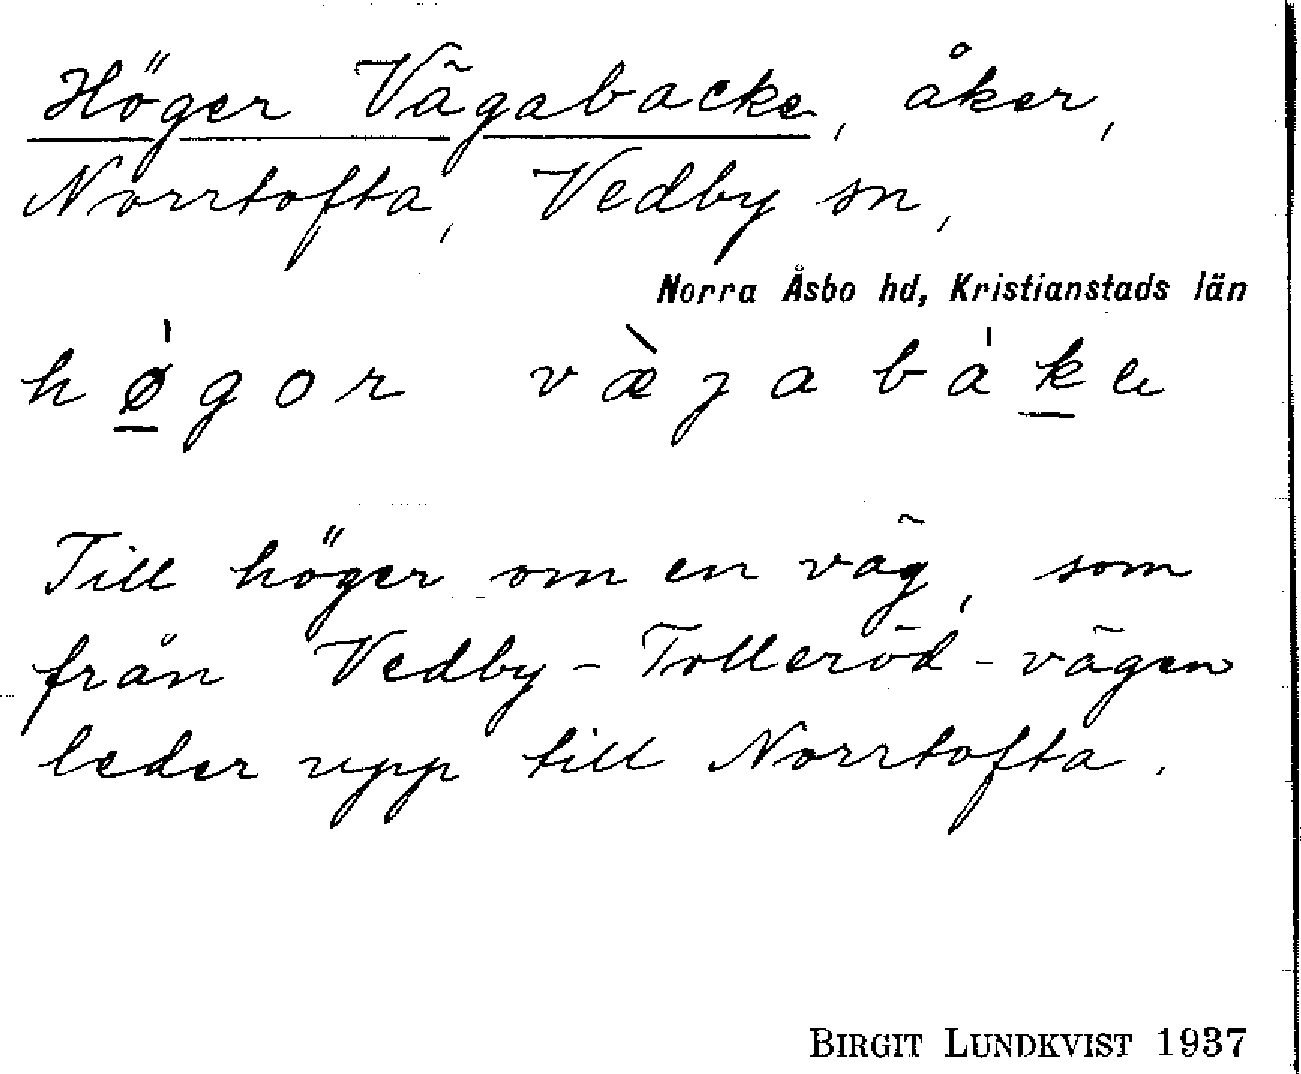 Höger Vägabacke, åker,
Norrtofta, Vedby sn,
Norra Åsbo hd, Kristianstads län
hǿ̲gor væ̀gabák̲e
Till höger om en väg, som
från Vedby - Tolleröd - vägen
leder upp till Norrtofta.
BIRGIT LUNDKVIST 1937